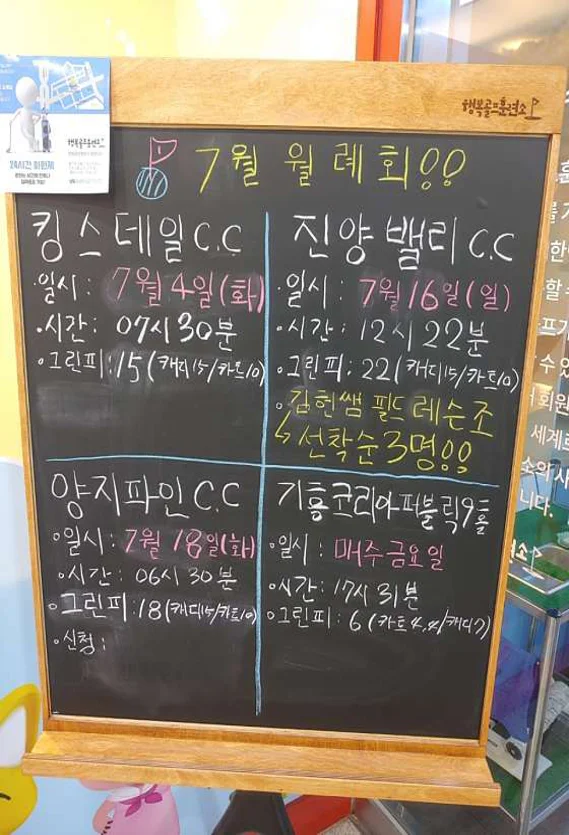 행복골프훈련소
행복골프훈련소
24시간 회원제
1
7월 월례회!!
킹스데일C.C
·일시: 7월 4일(화)
·시간: 07시 30분
·그린피: 15(캐디15/카트10)
진양밸리C.C
·일시: 7월 16일(일)
·시간: 12시 22분
·그린피: 22(캐디15/카트10)
·김헌쌤 필드 레슨조
↳선착순 3명!!
양지파인C.C
·일시: 7월 18일(화)
·시간: 06시 30분
·그린피: 18(캐디15/카트10)
·신청:
기흥코리아퍼블릭9홀
·일시: 매주 금요일
·시간: 17시 31분
·그린피: 6(카트4,4/캐디7)
세계로
니다.